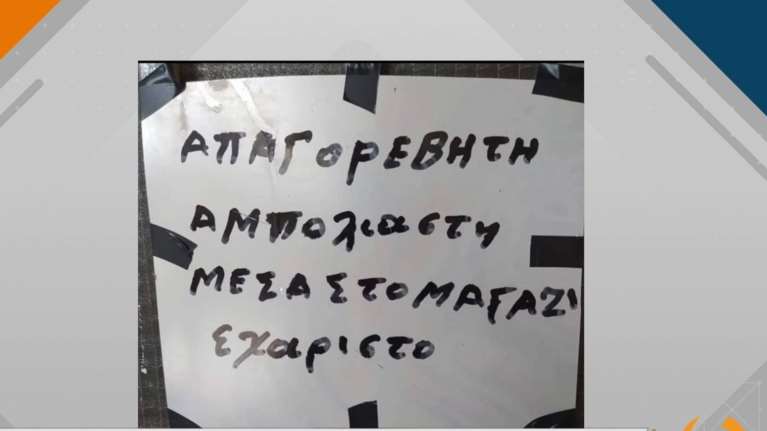 ΑΠΑΓΟΡΕΒΗΤΗ
ΑΜΠΟλιαστη
ΜΕΣΑ ΣΤΟ ΜΑΓΑΖι
εχαριστο